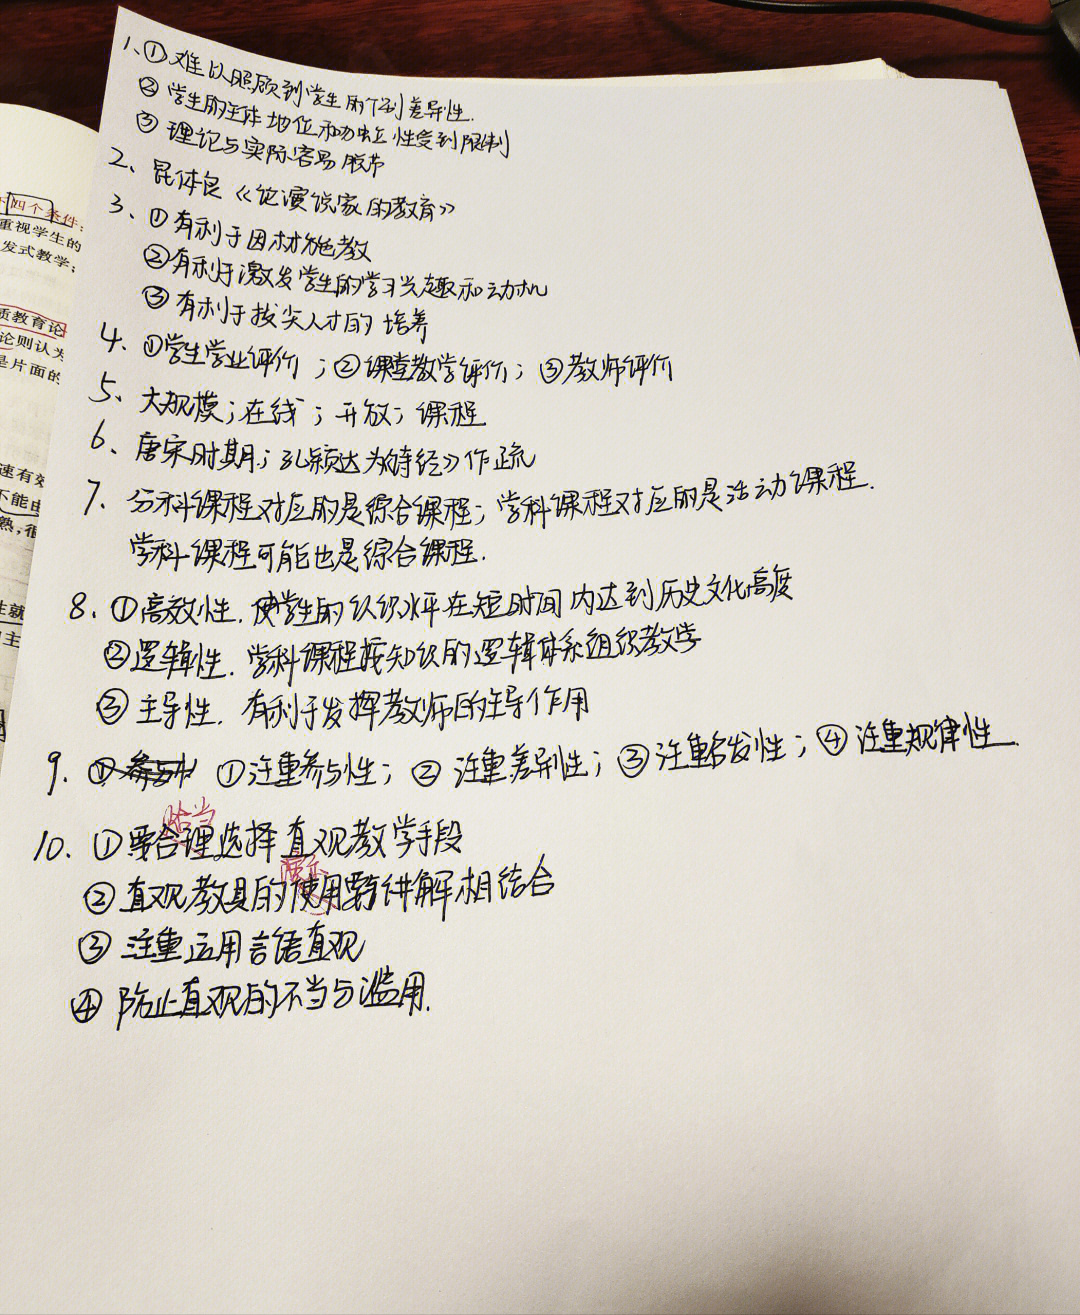 1、①难以照顾到学生的个别差异性.
②学生的主体地位和独立性受到限制
③理论与实际容易脱节
2、昆体良《论演说家的教育》
3、①有利于因材施教
②有利于激发学生的学习兴趣和动机
③有利于拔尖人才的培养
4、①学生学业评价；②课堂教学评价；③教师评价
5、大规模；在线；开放；课程
6、唐宋时期；孔颖达为《诗经》作疏
7、分科课程对应的是综合课程；学科课程对应的是活动课程.
学科课程可能也是综合课程.
8、①高效性.使学生的认识水平在短时间内达到历史文化高度
②逻辑性.学科课程按知识的逻辑体系组织教学
③主导性.有利于发挥教师的主导作用
9.①注重参与性；②注重差异性；③注重启发性；④注重规律性.
恰当
10.①要合理选择直观教学手段
演示
②直观教具的使用要与讲解相结合
③注重运用言语直观
④防止直观的不当与滥用.
四个条件：
重视学生的
发式教学；
质教育论
论则认为
是片面的
速有效
不能由
熟，很
性就